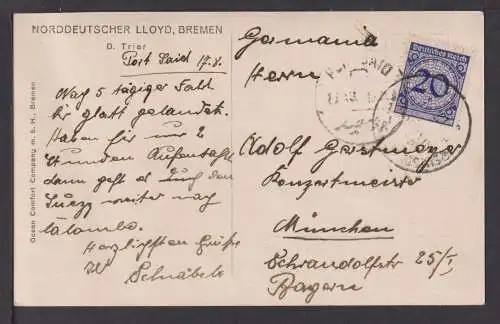 NORDDEUTSCHER LLOYD, BREMEN
D. Trier
Port Said 17.8.
Nach 5 tägiger Fahrt
hier glatt gelandet.
Haben hier nur 2
Stunden Aufenthalt
dann geht es durch den
Suezz weiter nach
Colombo.
Herzlichsten Grüße
W Schnäbele
Ocean Comfort Company m. b. H., Bremen
Germania
Herrn
Adolf Gerstmeier
Konzertmeister
München
Schraudolfstr 25/I
Bayern
Deutsches Reich
20